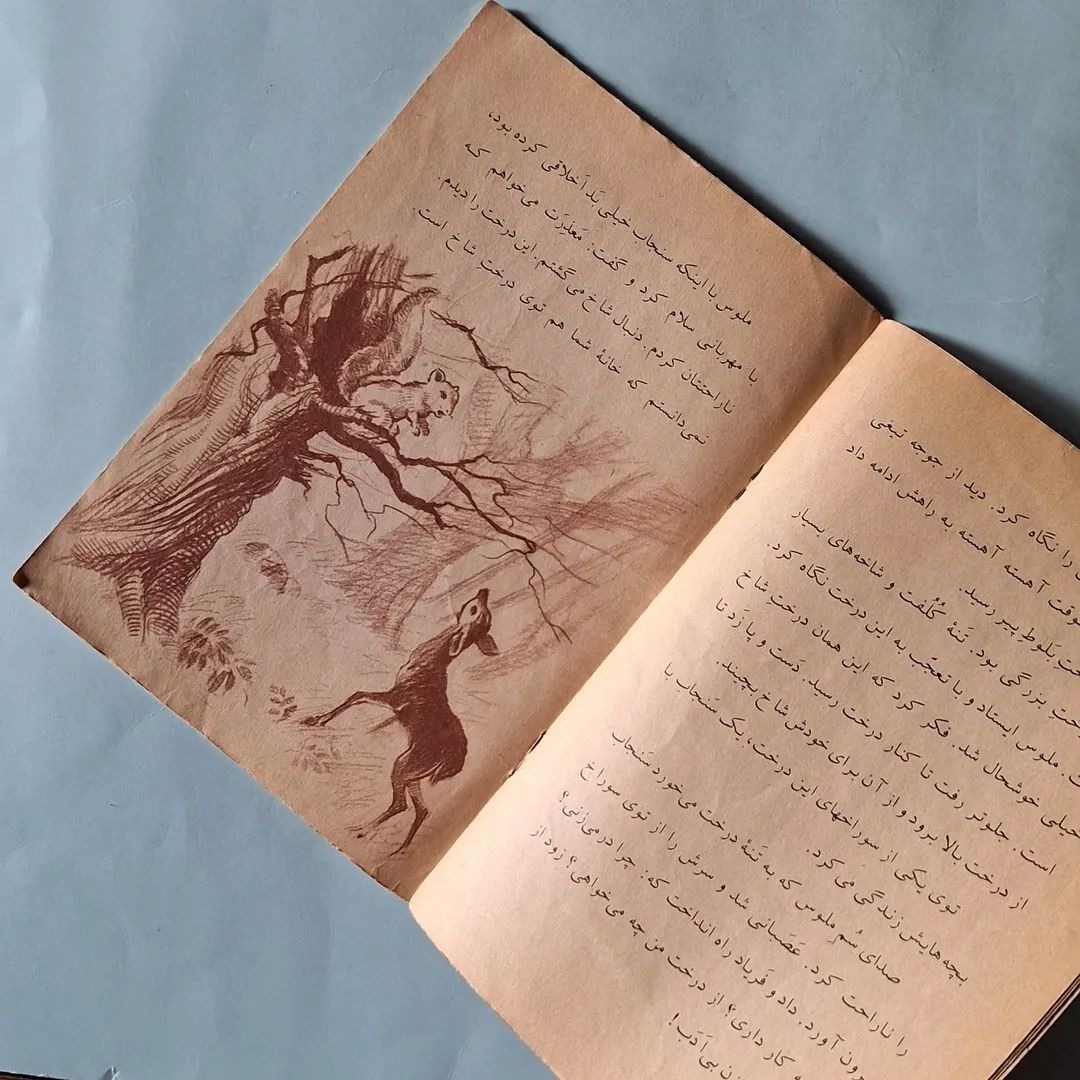 را نگاه کرد. دید از جوجه تیغی
آهسته آهسته به راهش ادامه داد
بَلوط پیر رسید.
بزرگی بود. تَنهٔ کُلُفت و شاخه‌های بسیار
ملوس ایستاد و با تعجّب به این درخت نگاه کرد.
خیلی خوشحال شد. فکر کرد که این همان درختِ شاخ
است. جلوتر رفت تا کنار درخت رسید. دَست و پا زَد تا
از درخت بالا برود و از آن برای خودش شاخ بچیند.
توی یکی از سوراخهای این درخت، یک سَنجاب با
بچه‌هایش زندگی می‌کرد.
صدای سُم ملوس که به تَنهٔ درخت می‌خورد سَنجاب
را ناراحت کرد. عَصَبانی شد و سرش را از توی سوراخ
آورد. داد و فَریاد راه انداخت که: چرا در می‌زنی؟
کار داری؟ از درخت من چه می‌خواهی؟ زود از
بی‌اَدَب!
ملوس با اینکه سنجاب خیلی بَد اَخلاقی کرده بود،
با مهربانی سلام کرد و گفت: مَعذِرَت می‌خواهم که
ناراحتتان کردم. دنبال شاخ می‌گشتم این درخت را دیدم.
نمی‌دانستم که خانهٔ شما هم توی درختِ شاخ است.